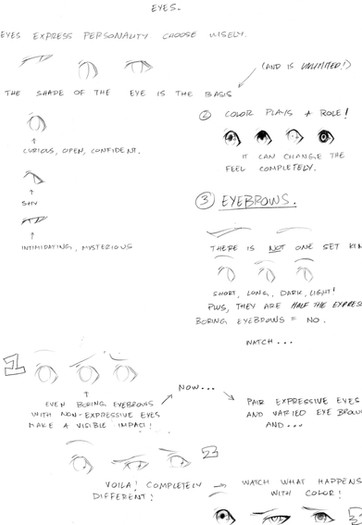 EYES.
EYES EXPRESS PERSONALITY CHOOSE WISELY.
(AND IS UNLIMITED!)
THE SHAPE OF THE EYE IS THE BASIS
CURIOUS, OPEN, CONFIDENT.
SHY
INTIMIDATING, MYSTERIOUS
② COLOR PLAYS A ROLE!
IT CAN CHANGE THE
FEEL COMPLETELY.
③ EYEBROWS.
THERE IS NOT ONE SET KIN
SHORT, LONG, DARK, LIGHT!
PLUS, THEY ARE HALF THE EXPRES
BORING EYEBROWS = NO.
WATCH...
1
EVEN BORING EYEBROWS
WITH NON-EXPRESSIVE EYES
MAKE A VISIBLE IMPACT!
NOW...
PAIR EXPRESSIVE EYES
AND VARIED EYE BROWS
AND...
2
VOILA! COMPLETELY
DIFFERENT!
WATCH WHAT HAPPENS
WITH COLOR!
3